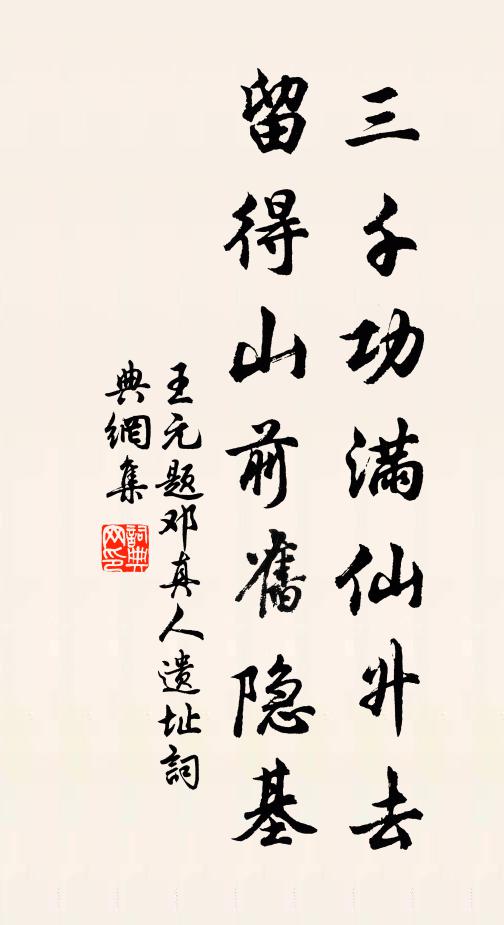 三千功满仙升去
留得山前舊隐基
王元题邓真人遗址詞
典網集
詞典
网印